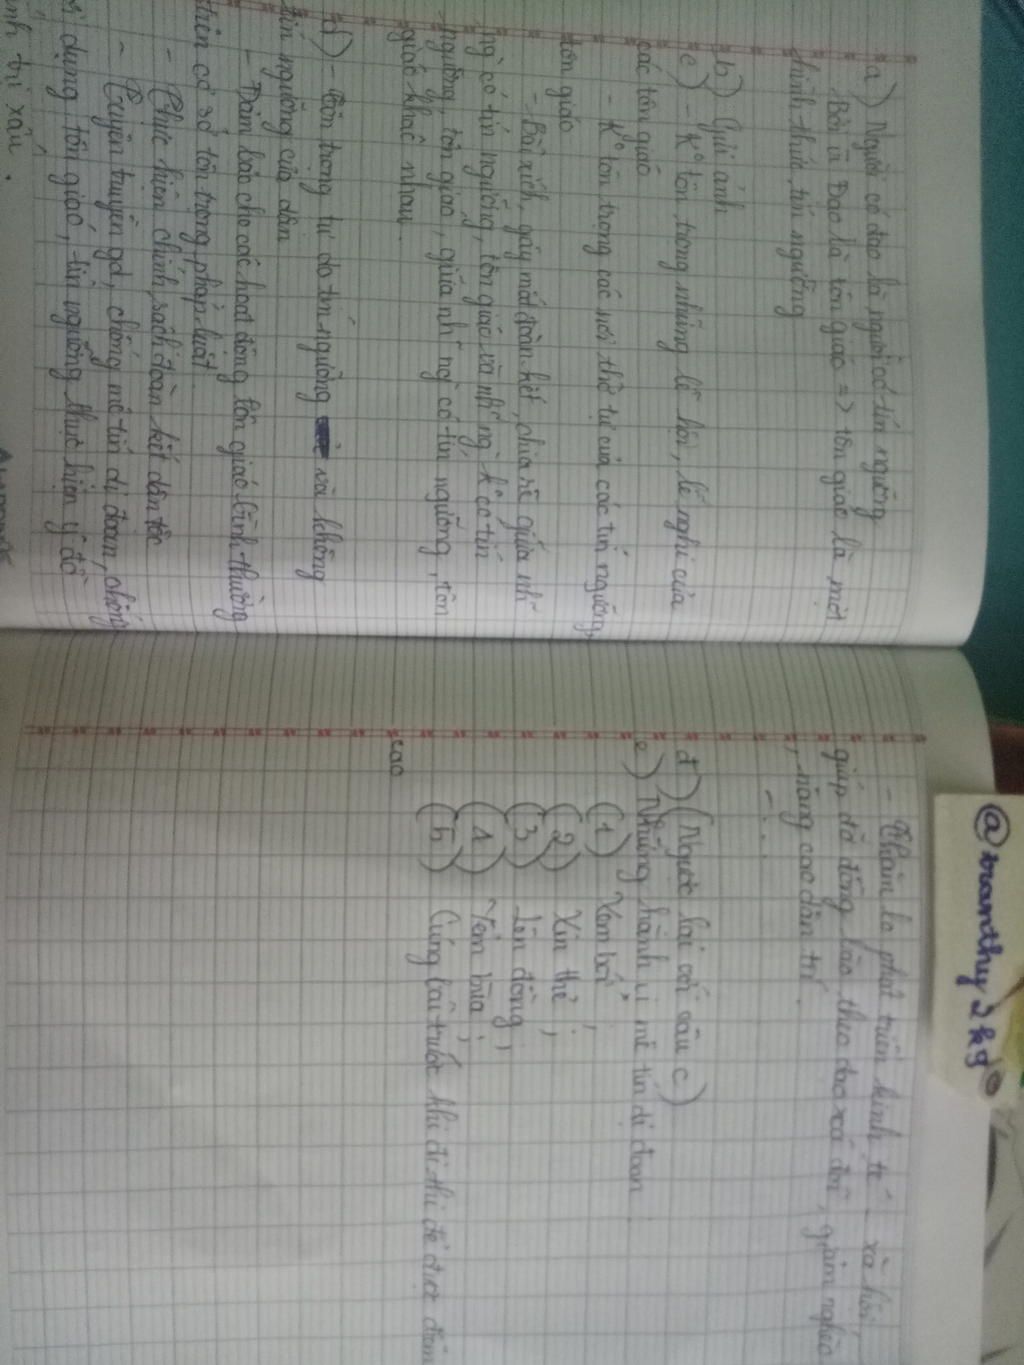 a) Người có đạo là người có tín ngưỡng
Bởi vì Đạo là tôn giáo => tôn giáo là một
hình thức tín ngưỡng
b) Gửi ảnh
c) - Ko tôn trọng những lễ hội, lễ nghi của
các tôn giáo
- Ko tôn trọng các nơi thờ tự của các tín ngưỡng,
tôn giáo
- Bài xích, gây mất đoàn kết, chia rẽ giữa nh~
ng` có tín ngưỡng, tôn giáo và nh~ ng` ko có tín
ngưỡng, tôn giáo, giữa nh~ ng` có tín ngưỡng, tôn
giáo khác nhau.
d) - Tôn trọng tự do tín ngưỡng và không
tín ngưỡng của dân
- Đảm bảo cho các hoạt động tôn giáo bình thường
trên cơ sở tôn trọng pháp luật.
- Thực hiện chính sách đoàn kết dân tộc
- Tuyên truyền gd, chống mê tín dị đoan, chống
lợi dụng tôn giáo, tín ngưỡng thực hiện ý đồ
chính trị xấu.
- Chăm lo phát triển kinh tế - xã hội
giúp đỡ đồng bào theo đạo xoá đói, giảm nghèo
, nâng cao dân trí.
- ...
đ) (Ngược lại với câu c)
e) Những hành vi mê tín dị đoan
(1) Xem bói;
(2) Xin thẻ;
(3) Lên đồng;
(4) Yểm bùa;
(5) Cúng bái trước khi đi thi để được điểm
cao
@tranthuy2kg